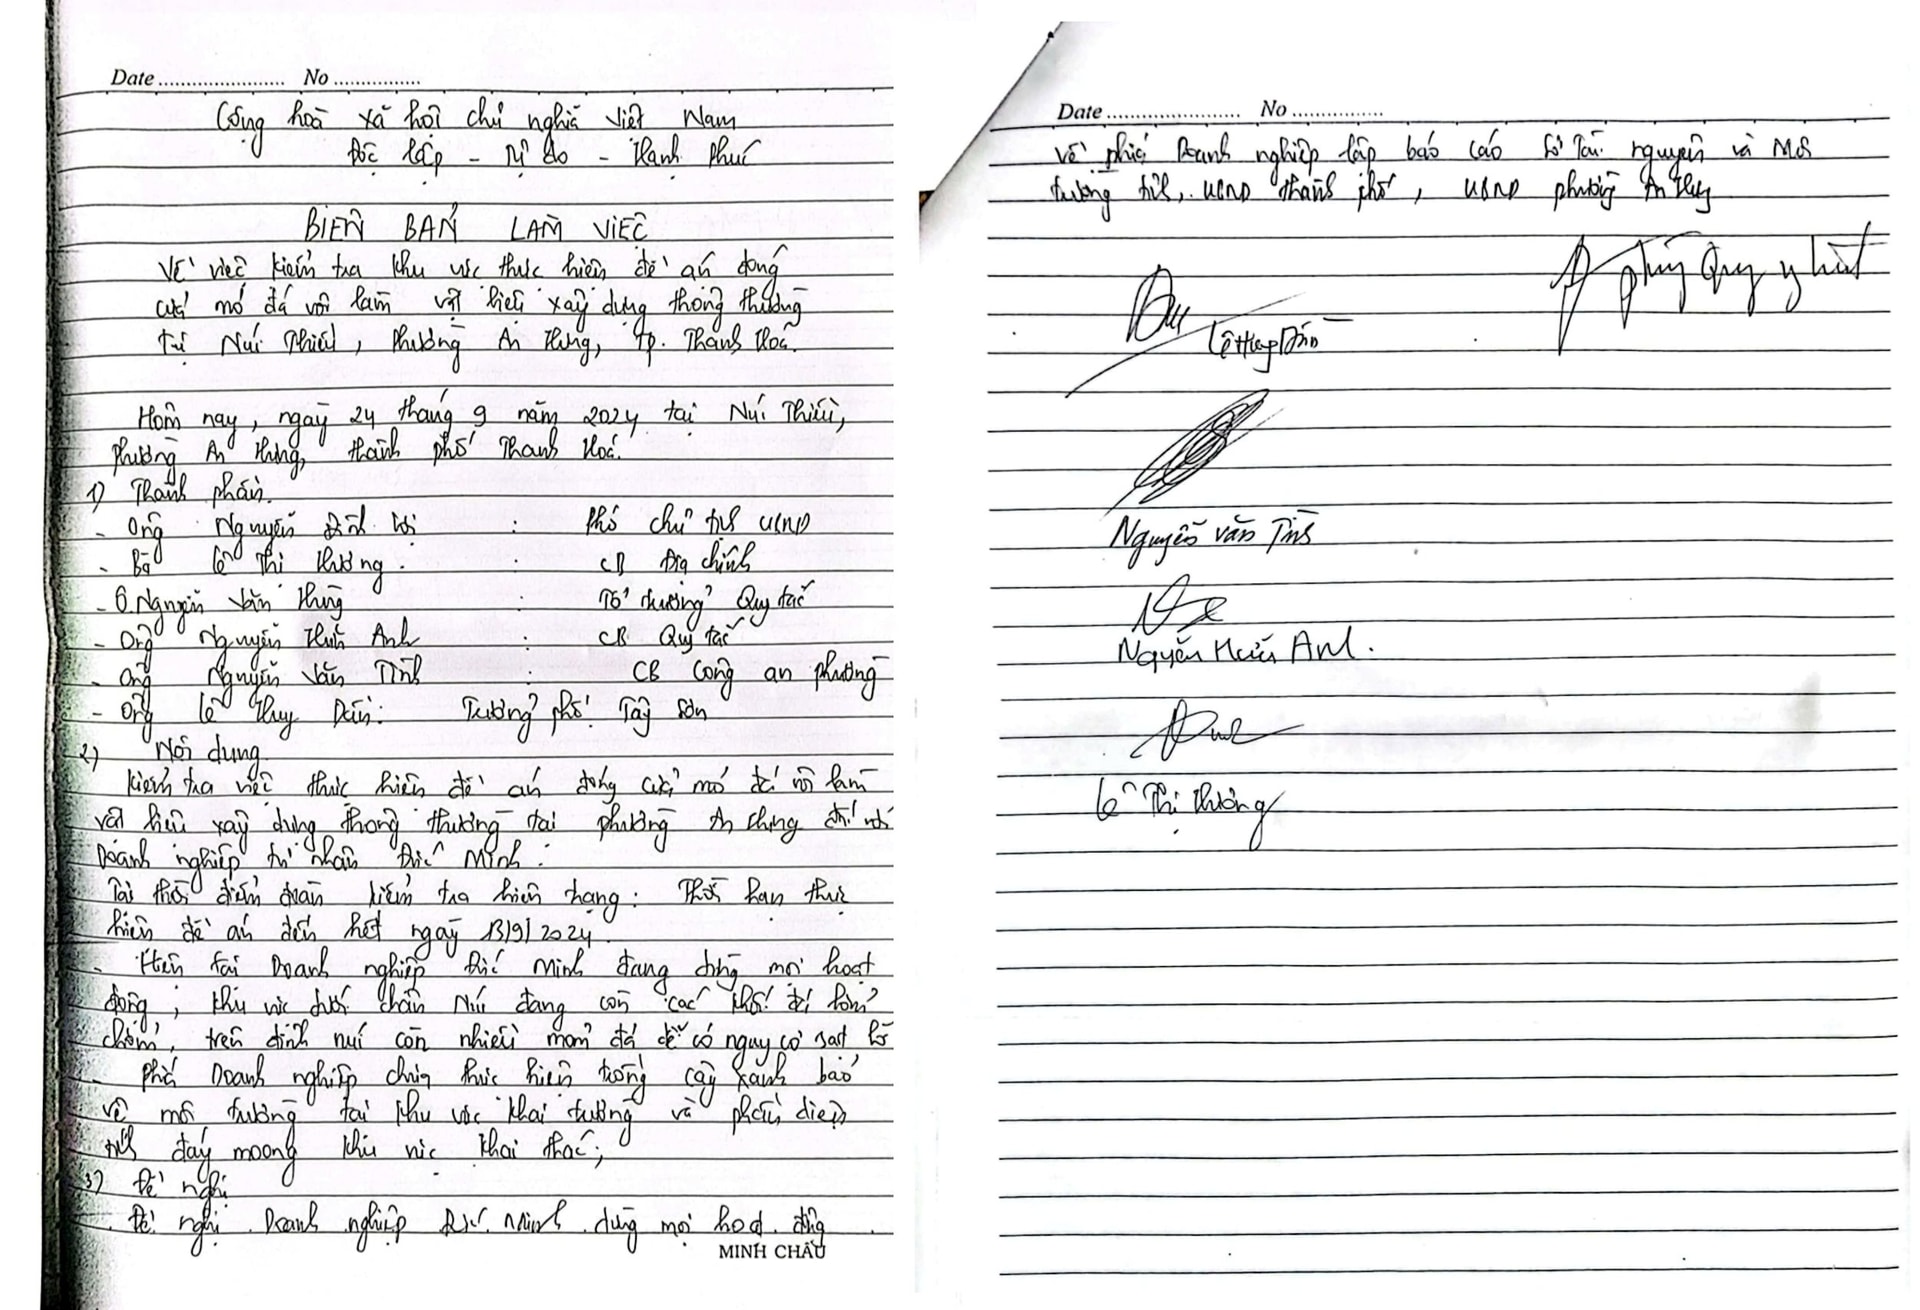 Date ...................... No ...............
Cộng hoà xã hội chủ nghĩa Việt Nam
Độc lập - Tự do - Hạnh Phúc
BIÊN BẢN LÀM VIỆC
Về việc kiểm tra khu vực thực hiện đề án đóng
cửa mỏ đá vôi làm vật liệu xây dựng thông thường
Tại Núi Thiều, Phường An Hưng, Tp. Thanh Hoá.
Hôm nay, ngày 24 tháng 9 năm 2024 tại Núi Thiều,
Phường An Hưng, thành phố Thanh Hoá.
1) Thành phần.
- Ông Nguyễn Đình : Phó chủ tịch UBND
- Bà Lê Thị Hương. : CB Địa chính
- Ô. Nguyễn Văn Hùng : Tổ trưởng Quy tắc
- Ông Nguyễn Hữu Anh : CB Quy tắc
- Ông Nguyễn Văn Tĩnh : CB Công an phường
- Ông Lê Huy : Trưởng phố Tây Sơn
2) Nội dung
Kiểm tra việc thực hiện đề án đóng cửa mỏ đá vôi làm
vật liệu xây dựng thông thường tại phường An Hưng đối với
Doanh nghiệp tư nhân Đức Minh.
Tại thời điểm đoàn kiểm tra hiện trạng: Thời hạn thực
hiện đề án đến hết ngày 13/9/2024.
- Hiện tại Doanh nghiệp Đức Minh đang dừng mọi hoạt
động, khu vực dưới chân Núi đang còn các khối đá lởm
chởm, trên đỉnh núi còn nhiều mỏm đá dễ có nguy cơ sạt lở
- Phía Doanh nghiệp chưa thực hiện trồng cây xanh bảo
vệ môi trường tại khu vực khai trường và phần diện
tích đáy moong khu vực khai thác;
3) Đề nghị
Đề nghị Doanh nghiệp Đức Minh dừng mọi hoạt động
MINH CHÂU
Date ...................... No ...............
Về phía Doanh nghiệp lập báo cáo Sở Tài nguyên và Môi
trường tỉnh, UBND thành phố, UBND phường An Hưng
Nguyễn Văn Tĩnh
Nguyễn Hữu Anh.
Lê Thị Hương